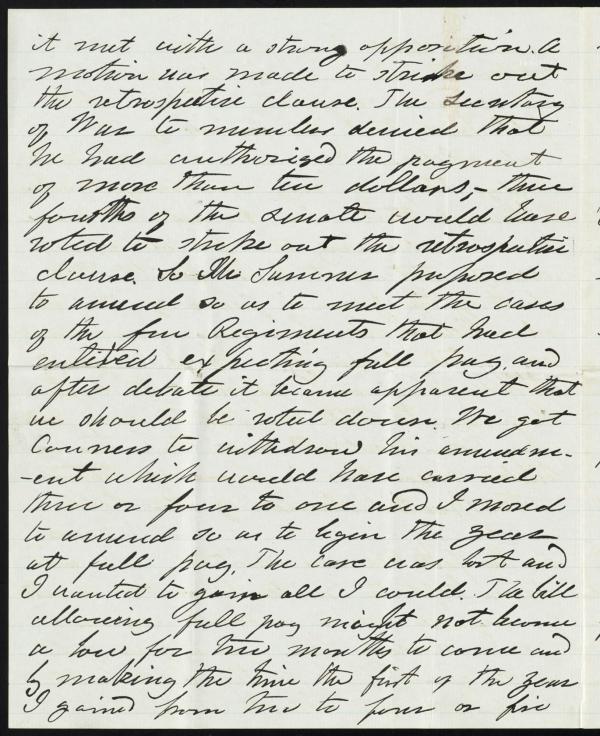 it met with a strong opposition. A
motion was made to strike out
the retrospective clause. The Secretary
of War to members denied that
he had authorized the payment
of more than ten dollars, – three
fourths of the Senate would have
voted to strike out the retrospective
clause. So Mr Sumner proposed
to amend so as to meet the cases
of the few Regiments that had
enlisted expecting full pay, and
after debate it became apparent that
we should be voted down. We got
Conness to withdraw his amendm-
-ent which would have carried
three or four to one and I moved
to amend so as to begin the year
at full pay. The case was lost and
I wanted to gain all I could. The bill
allowing full pay might not become
a law for two months to come and
by making the time the first of the year
I gained from two to four or five